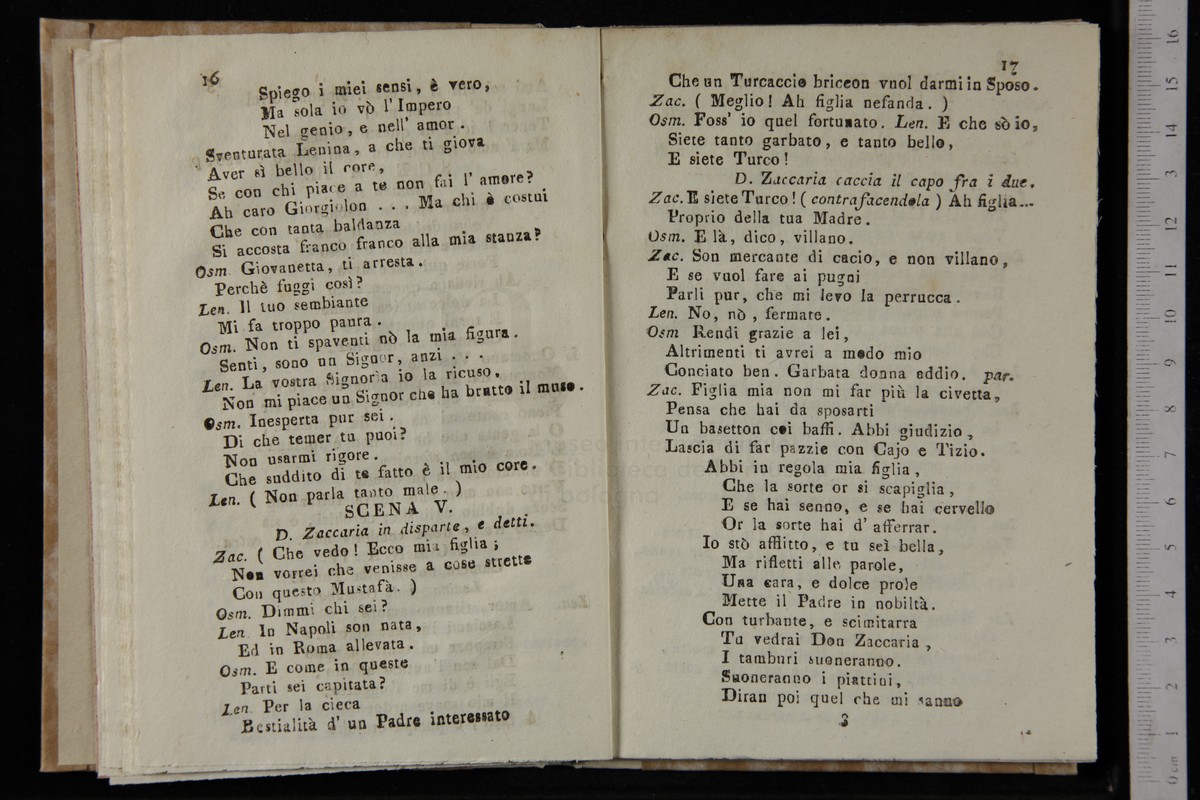 16
Spiego i miei sensi, è vero,
Ma sola io vò l'Impero
Nel genio, e nell' amor.
Sventurata Lenina, a che ti giova
Aver sì bello il core,
Se con chi piace a te non fai l' amore?
Ah caro Giorgiolon . . . Ma chi è costui
Che con tanta baldanza
Si accosta franco franco alla mia stanza?
Osm Giovanetta, ti arresta.
Perchè fuggi così?
Len. Il tuo sembiante
Mi fa troppo paura.
Osm. Non ti spaventi nò la mia figura.
Senti, sono un Signor, anzi . . .
Len. La vostra Signorìa io la ricuso.
Non mi piace un Signor che ha brutto il muso.
Osm. Inesperta pur sei.
Di che temer tu puoi?
Non usarmi rigore.
Che suddito di te fatto è il mio core.
Len. ( Non parla tanto male. )
SCENA V.
D. Zaccaria in disparte, e detti.
Zac. ( Che vedo! Ecco mia figlia;
Non vorrei che venisse a cose strette
Con questo Mustafà. )
Osm. Dimmi chi sei?
Len In Napoli son nata,
Ed in Roma allevata.
Osm. E come in queste
Parti sei capitata?
Len Per la cieca
Bestialità d' un Padre interessato
17
Che un Turcaccio briccon vuol darmi in Sposo.
Zac. ( Meglio! Ah figlia nefanda. )
Osm. Foss' io quel fortunato. Len. E che sò io,
Siete tanto garbato, e tanto bello,
E siete Turco!
D. Zaccaria caccia il capo fra i due.
Zac. E siete Turco! ( contrafacendola ) Ah figlia...
Proprio della tua Madre.
Osm. E là, dico, villano.
Zac. Son mercante di cacio, e non villano,
E se vuol fare ai pugni
Parli pur, che mi levo la perrucca.
Len. No, nò, fermate.
Osm Rendi grazie a lei,
Altrimenti ti avrei a modo mio
Conciato ben. Garbata donna addio. par.
Zac. Figlia mia non mi far più la civetta,
Pensa che hai da sposarti
Un basetton coi baffi. Abbi giudizio,
Lascia di far pazzie con Cajo e Tizio.
Abbi in regola mia figlia,
Che la sorte or si scapiglia,
E se hai senno, e se hai cervello
Or la sorte hai d' afferrar.
Io stò afflitto, e tu sei bella,
Ma rifletti alle parole,
Una cara, e dolce prole
Mette il Padre in nobiltà.
Con turbante, e scimitarra
Tu vedrai Don Zaccaria,
I tamburi suoneranno.
Suoneranno i piattini,
Diran poi quel che mi sanno
3